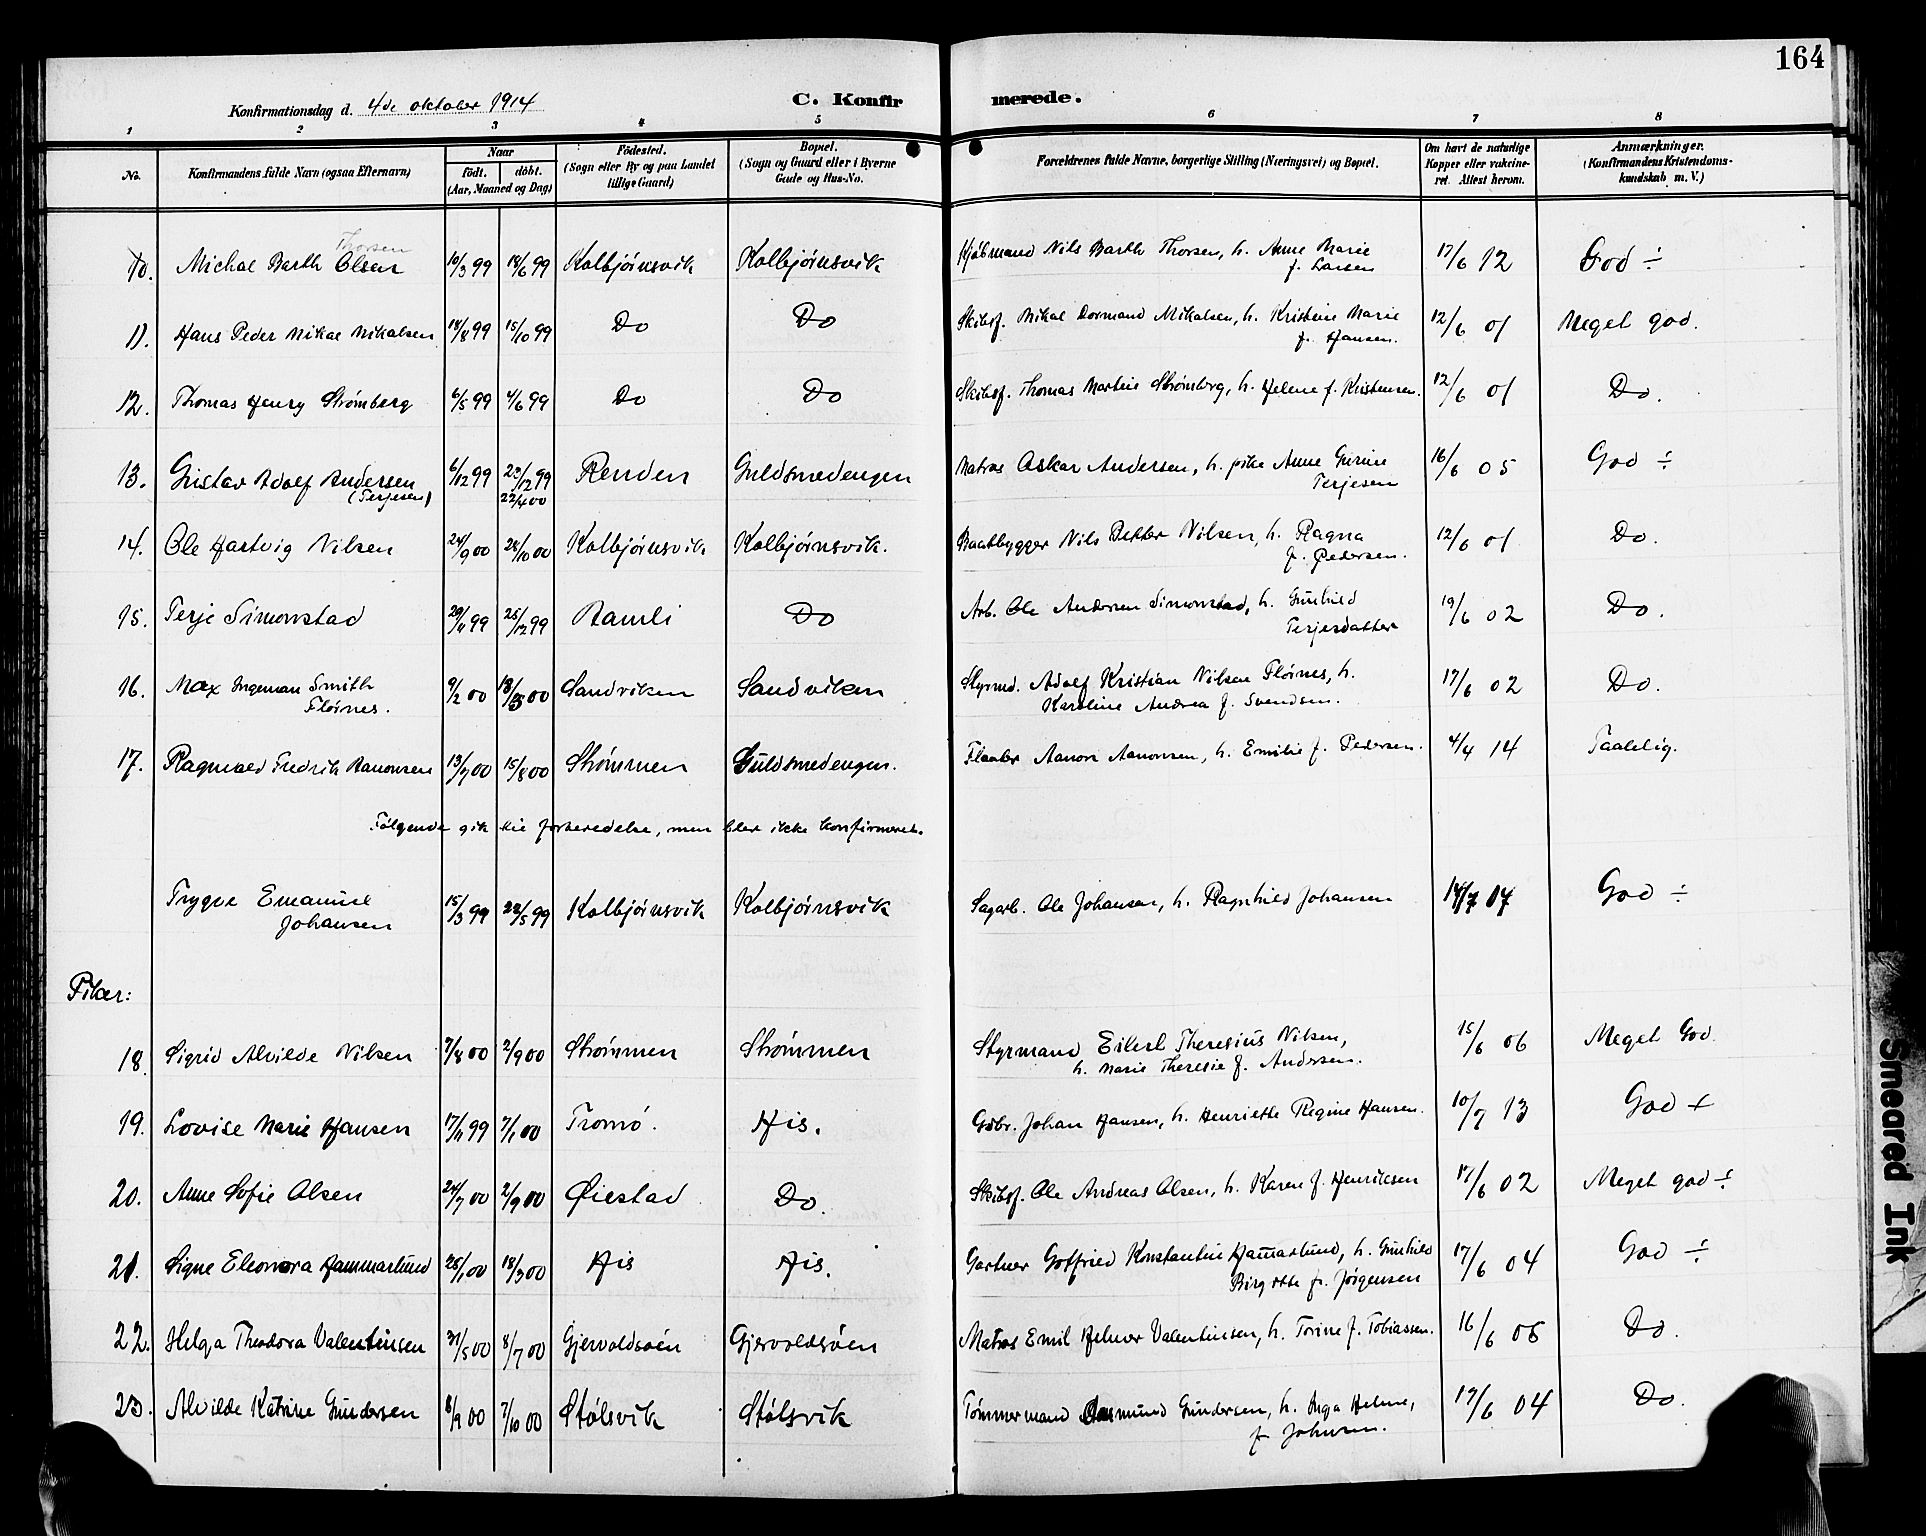 164
Konfirmationsdag d. 4de oktober 1914
C. Konfirmerede.
1 2 3 4 5 6 7 8
No. Konfirmandens fulde Navn (ogsaa Efternavn) Naar født. døbt. (Aar, Maaned og Dag) Fødested. (Sogn eller By og paa Landet tillige Gaard) Bopæl. (Sogn og Gaard eller i Byerne Gade og Hus-No. Forældrenes fulde Navne, borgerlige Stilling (Næringsvei) og Bopæl. Om havt de naturlige Kopper eller vakcineret. Attest herom. Anmærkninger. (Konfirmandens Kristendomskundskab m. V.)
Thorsen
10. Michal Barth Olsen 10/3 99 18/6 99 Kolbjørnsvik Kolbjørnsvik Kjøbmand Nils Barth Thorsen, h. Anne Marie 17/6 12 God ÷
f. Larsen
11. Hans Peder Mikal Mikalsen 18/8 99 15/10 99 Do Do Skibsf. Mikal Dormand Mikalsen, h. Kristine Marie 12/6 01 Meget god.
f. Hansen.
12. Thomas Henry Strømberg 6/5 99 4/6 99 Do Do Skibsf. Thomas Martin Strømberg, h. Helene f. Kristensen. 12/6 01 Do.
13. Gustav Adolf Andersen 6/12 99 23/12 99 Renden Guldsmedengen Matros Oskar Andersen, h. pike Anne Gurine 16/6 05 God ÷
(Terjesen) 22/4 00 Terjesen
14. Ole Hartvig Nilsen 24/9 00 28/10 00 Kolbjørnsvik Kolbjørnsvik. Baatbygger Nils Petter Nilsen, h. Ragna 12/6 01 Do.
f. Pedersen.
15. Terje Simonstad 29/11 99 25/12 99 Ramli Do Arb. Ole Andersen Simonstad, h. Gunhild 19/6 02 Do.
Terjesdatter
16. Max Ingeman Smith 9/2 00 18/3 00 Sandviken Sandviken Styrmd. Adolf Kristian Nilsen Fløines, h. 17/6 02 Do.
Fløines. Karoline Andrea f. Svendsen.
17. Ragnvald Fredrik Aanonsen 13/7 00 15/8 00 Strømmen Guldsmedengen. Aanon Aanonsen, h. Emilie f. Pedersen. 4/4 14 Taalelig.
Følgende gik til forberedelse, men blev ikke konfirmeret.
Trygve Emanuel 15/3 99 22/5 99 Kolbjørnsvik Kolbjørnsvik Sagarb. Ole Johansen, h. Ragnhild Johansen 07 God ÷
Johansen
Piker:
18. Sigrid Alvilde Nilsen 7/8 00 2/9 00 Strømmen Strømmen Styrmand Eilert Theresius Nilsen, 15/6 06 Meget God.
h. Marie Theresie f. Andersen.
19. Lovise Marie Hansen 17/11 99 7/1 00 Tromø. His. Gdbr. Johan Hansen, h. Henriette Regine Hansen. 10/7 13 God +
20. Anne Sofie Olsen 24/7 00 2/9 00 Øiestad Do. Skibsf. Ole Andreas Olsen, h. Karen f. Henriksen 17/6 02 Meget god ÷
21. Signe Eleonora Hammarlund 25/1 00 18/3 00 His His. Gartner Gotfried Konstantin Hammarlund, h. Gunhild 17/6 04 God ÷
Birgitte f. Jørgensen
22. Helga Theodora Valentinsen 31/5 00 8/7 00 Gjervoldsøen Gjervoldsøen Matros Emil Helmer Valentinsen, h. Torine f. Tobiassen. 16/6 06 Do.
23. Alvilde Katrine Gundersen 8/9 00 7/10 00 Stølsvik Stølsvik Tømmermand Aasmund Gundersen, h. Inga Helene, 17/6 04 Do.
f. Johnsen.
Smeared Ink